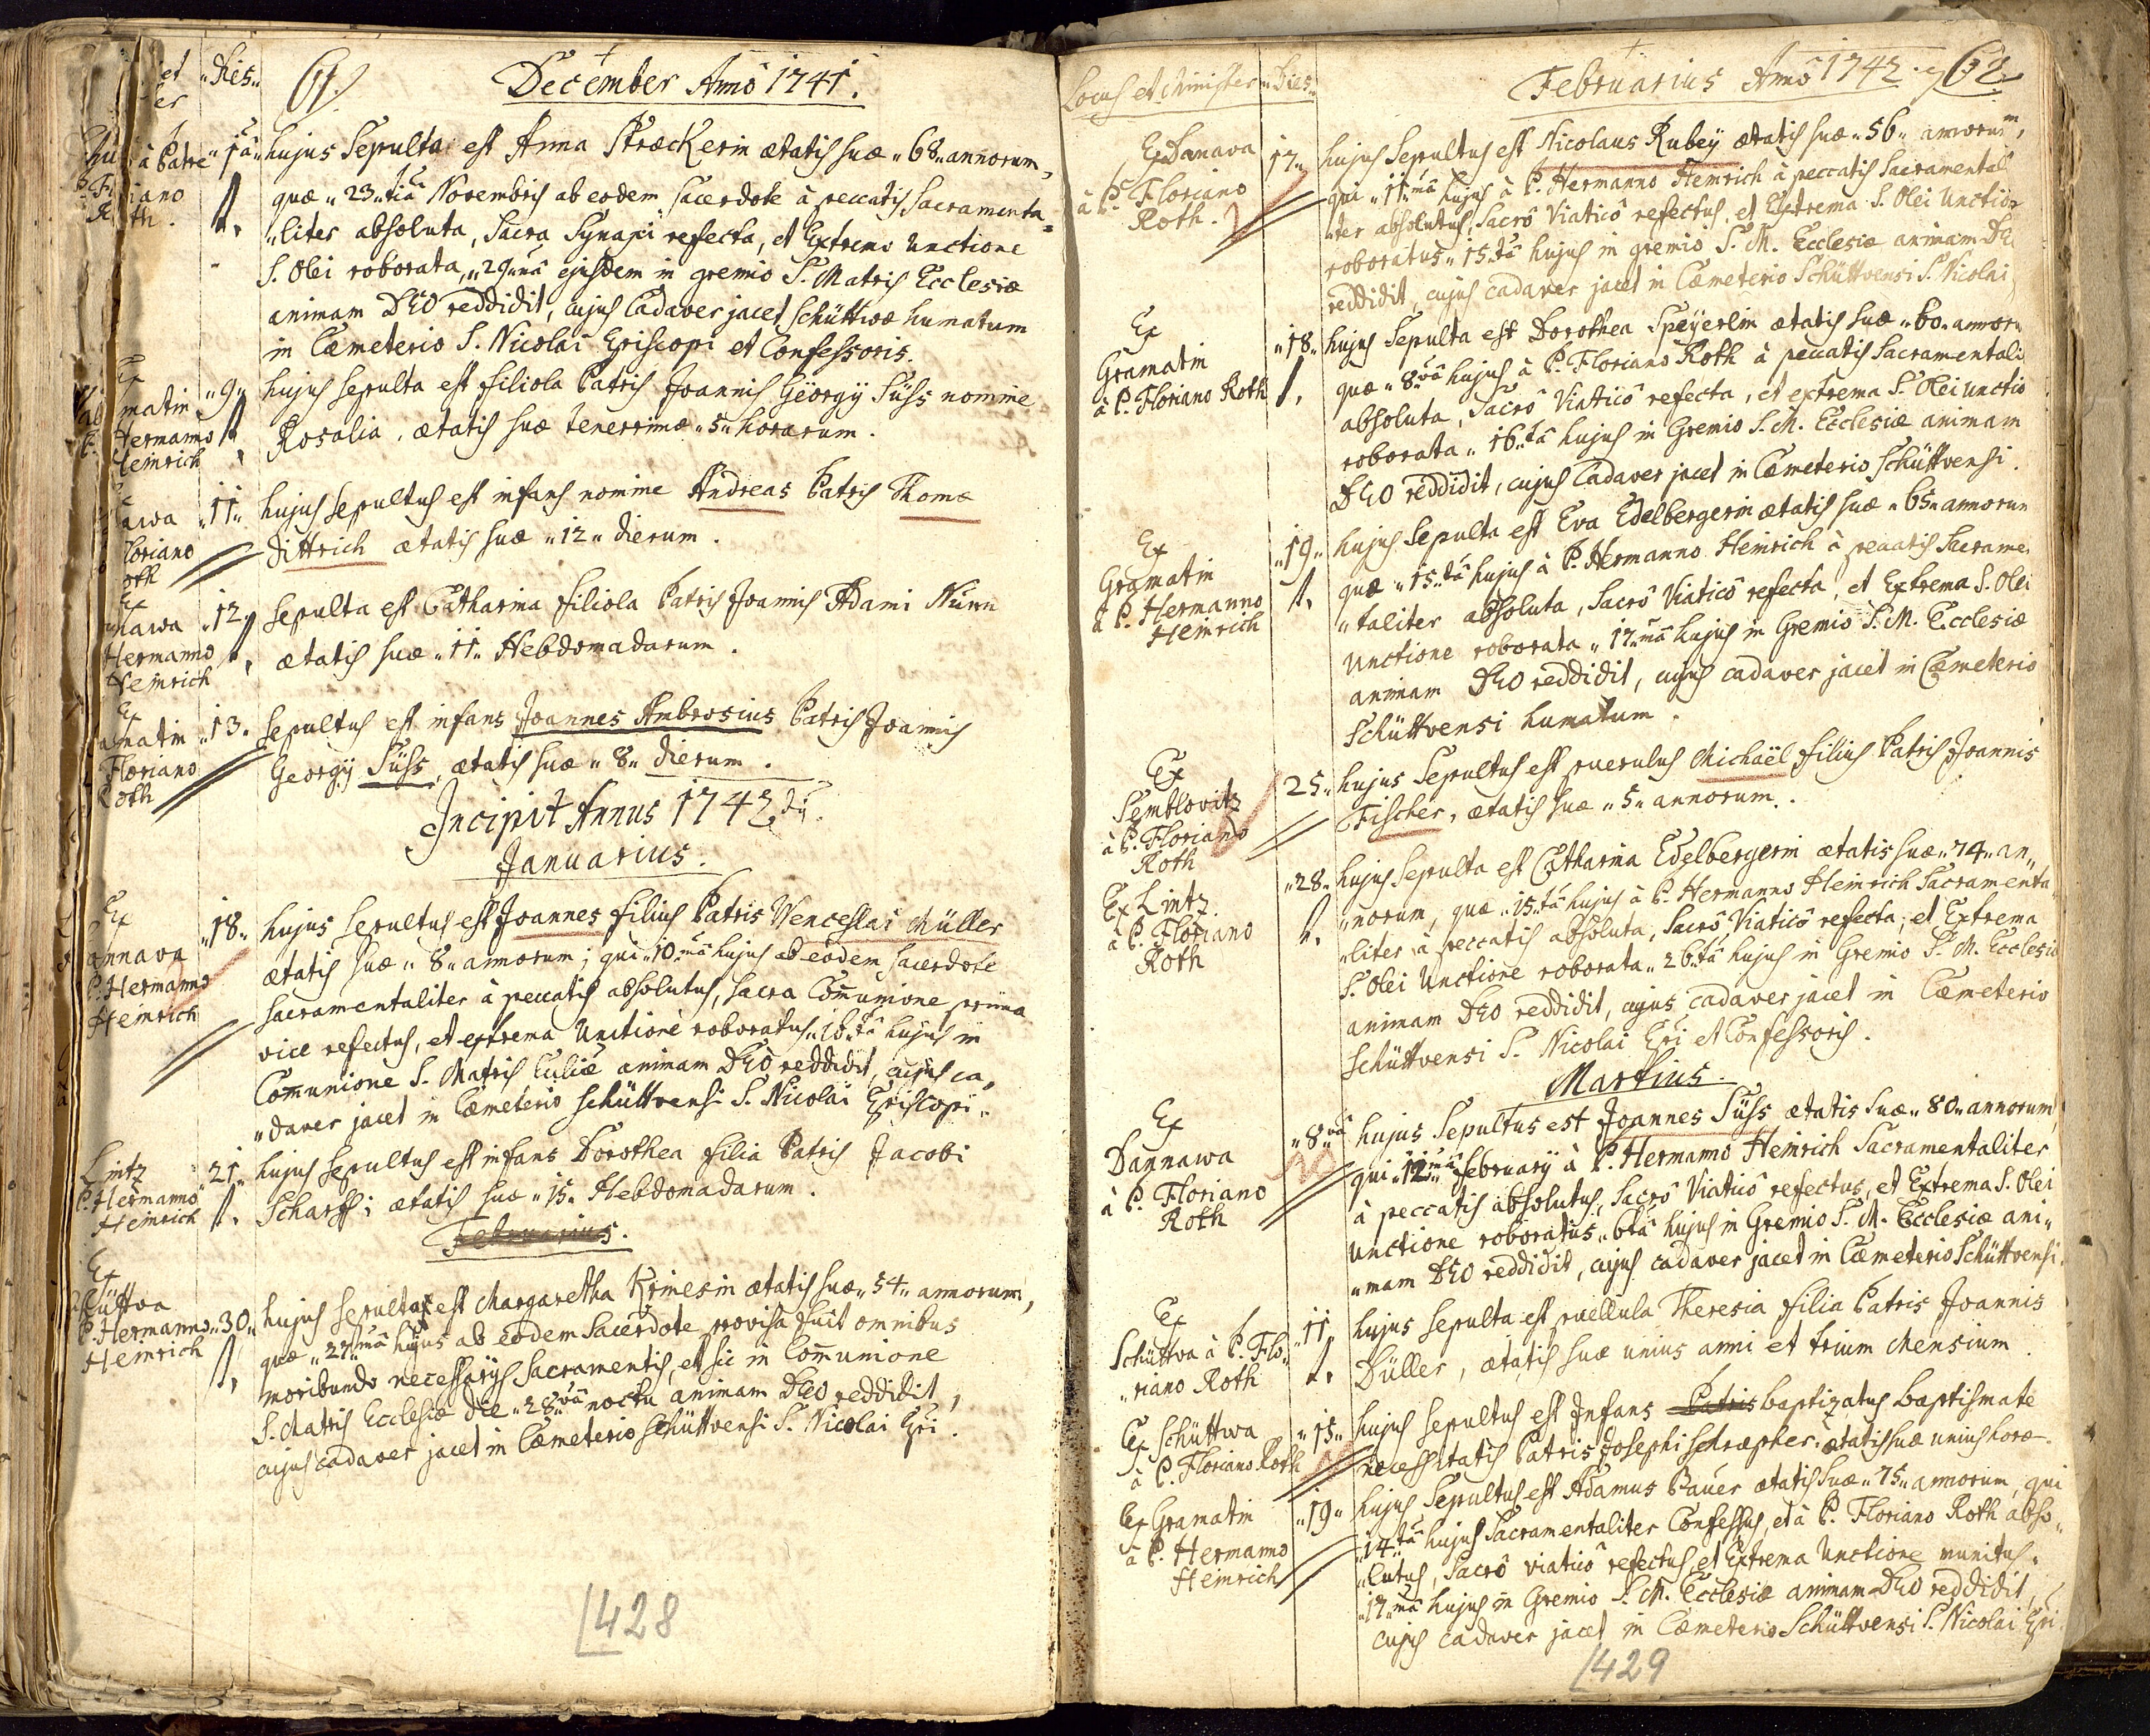 Dies
61.
December Anno 1741.
à Patre
Roth.
1ã
hujus Sepulta est Anna Stræckerin ætatis suæ 68 annorum,
quæ 23tia Novembris ab eodem sacerdote à peccatis Sacramenta=
liter absoluta, Sacra Synapi refecta, et Extrema Unctione
S. Olei roborata, 29nã ejusdem in gremio S. Matris Ecclesiæ
animam DEO reddidit, cujus Cadaver jacet Schüttwæ humatum
in Cæmeterio S. Nicolai Episcopi et Confessoris.
Ex
matin
Hermanno
Heinrich
9
hujus sepulta est filiola Patris Joannis Geörgÿ Süss nomine
Rosalia, ætatis suæ tenerrimæ 5 horarum.
awa
loriano
oth
11
hujus sepultus est infans nomine Andreas Patris Thomæ
Dittrich ætatis suæ 12 dierum.
Ex
nawa
Hermanno
Heinrich
12
sepulta est Catharina filiola Patris Joannis Adami Nürn
ætatis suæ 11 Hebdomadarum.
Ex
matin
Floriano
Roth
13.
sepultus est infans Joannes Ambrosius Patris Joannis
Georgÿ Süss, ætatis suæ 8 dierum.
Incipit Annus 1742dũ.
Januarius.
Ex
annava
P. Hermanno
Heinrich
18
hujus sepultus est Joannes filius Patris Wenceslai Müller
ætatis suæ 8 annorum; qui 10mã hujus ab eodem sacerdote
sacramentaliter à peccatis absolutus, sacra Comunione prima
vice refectus, et extrema Unctione roboratus 16tã hujus in
Comunione S. Matris Ecclsiæ animam DEO reddidit, cujus ca,
daver jacet in Cæmeterio Schüttvensi S. Nicolai Episcopi.
Lintz
P. Hermanno
Heinrich
21
hujus sepultus est infans Dorothea filia Patris Jacobi
Scharff; ætatis suæ 15 Hebdomadarum.
Februarius.
Ex
hüttva
P. Hermanno
Heinrich
30
hujus sepulta est Margaretha Krinesin ætatis suæ 54 annorum,
quæ 27mã hujus ab eodem Sacerdote provisa fuit omnibus
moribundo necessarÿs Sacramentis, et sic in Comunione
S. Matris Ecclesiæ die 28vã noctu animam DEO reddidit,
cujus cadaver jacet in Cæmeterio Schüttvensi S. Nicolai Epi.
428
Locus et Minister
Dies
Februarius Anno 1742.
62.
Ex Danava
à P. Floriano
Roth.
17
hujus Sepultus est Nicolaus Rubeÿ ætatis suæ 56 annorum,
qui 11mã hujus à P. Hermanno Heinrich à peccatis Sacramental
iter absolutus, Sacrô Viaticô refectus, et Extrema S. Olei Unctio
roboratus 15tã hujus in gremio S. M. Ecclesiæ animam DE
reddidit, cujus cadaver jacet in Cæmeterio Schüttvensi S. Nicolai
Ex
Gramatin
à P. Floriano Roth
18
hujus Sepulta est Dorothea Speÿerlin ætatis suæ 60 annoru
quæ 8vã hujus à P. Floriano Roth à peccatis Sacramentali
absoluta, Sacrô Viaticô refecta, et extrema S. Olei unctio
roborata 16tã hujus in Gremio S. M. Ecclesiæ animam
DEO reddidit, cujus Cadaver jacet in Cæmeterio Schüttvensi.
Ex
Gramatin
à P. Hermanno
Heinrich
19
hujus Sepulta est Eva Edelbergerin ætatis suæ 65 annorum
quæ 15tã hujus à P. Hermanno Heinrich à peccatis Sacrame
taliter absoluta, Sacrô Viaticô refecta, et Extrema S. Olei
Unctione roborata 17mã hujus in Gremio S. M. Ecclesiæ
animam DEO reddidit, cujus cadaver jacet in Cæmeterio
Schüttvensi humatum.
Ex
Semblovitz
à P. Floriano
Roth
25
hujus Sepultus est puerulus Michaël filius Patris Joannis
Fischer, ætatis suæ 5 annorum.
Ex Lintz.
à P. Floriano
Roth
28
hujus Sepulta est Catharina Edelbergerin ætatis suæ 74 an
norum, quæ 15tã hujus à P. Hermanno Heinrich Sacramenta
liter à peccatis absoluta, Sacrô Viaticô refecta, et Extrema
S. Olei Unctione roborata 26tã hujus in Gremio S. M. Ecclesiæ
animam DEO reddidit, cujus cadaver jacet in Cæmeterio
Schüttvensi S. Nicolai Epi et Confessoris.
Martius.
Ex
Dannawa
à P. Floriano
Roth
8vã
hujus Sepultus est Joannes Süss ætatis suæ 80 annorum,
qui 12mã Februarÿ à P. Hermanno Heinrich Sacramentaliter
à peccatis absolutus, Sacrô Viaticô refectus, et Extrema S. Olei
unctione roboratus 6tã hujus in Gremio S. M. Ecclesiæ ani
mam DEO reddidit, cujus cadaver jacet in Cæmeterio Schüttvensi.
Ex
Schüttva à P. Flo
riano Roth
11
hujus Sepulta est puellula Theresia filia Patris Joannis
Düller, ætatis suæ unius anni et trium Mensium.
Ex Schüttwa
à P. Floriano Roth
15
hujus sepultus est Infans Patris baptizatus baptismate
necessitatis Patris Josephi Schræpher ætatis suæ unius horæ.
Ex Gramatin
à P. Hermanno
Heinrich
19
hujus Sepultus est Adamus Bauer ætatis suæ 75 annorum, qui
14tã hujus Sacramentaliter Confessus, et à P. Floriano Roth abso
lutus, Sacrô viaticô refectus, et Extrema Unctione munitus.
17mã hujus in Gremio S. M. Ecclesiæ animam DEO reddidit,
cujus cadaver jacet in Cæmeterio Schüttvensi S. Nicolai Epi.
429